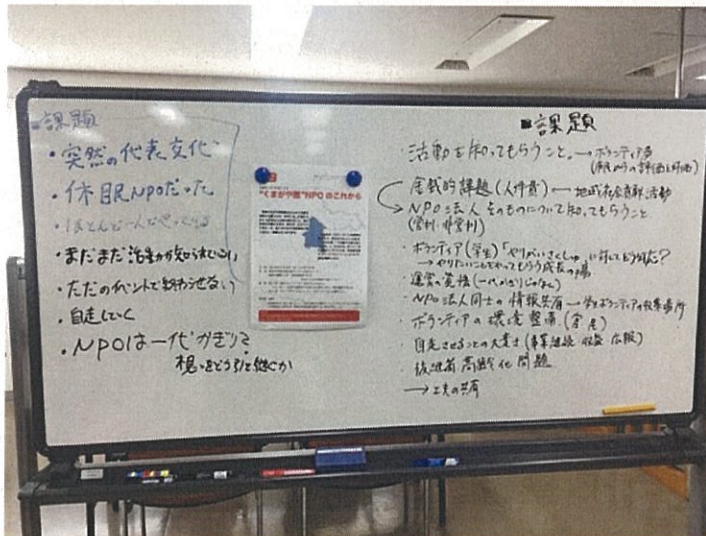 ■課題
・突然の代表交代
・休眠NPOだった
・ほとんど一人でやってる
・まだまだ活動が知られていない
・ただのイベントで終わらせない
・自走していく
・NPOは一代かぎり?
想いをどう引き継ぐか
"くまがや圏"NPOのこれから
■課題
・活動を知ってもらうこと。→ボランティア
金銭的課題(人件費)←地域
→NPO法人そのものについて知ってもらうこと
(営利・非営利)
・ボランティア(学生)「やりがいさくしゅ」に対してどう
→やりたいことをやってもらう成長の場
・運営の(一代かぎりじゃない)
・NPO法人同士の情報共有→学生ボランティアの場所
・ボランティアの環境整備
・自走させることの大変さ(事業継続・収益・広報)
・後継者高齢化問題
→工夫の共有